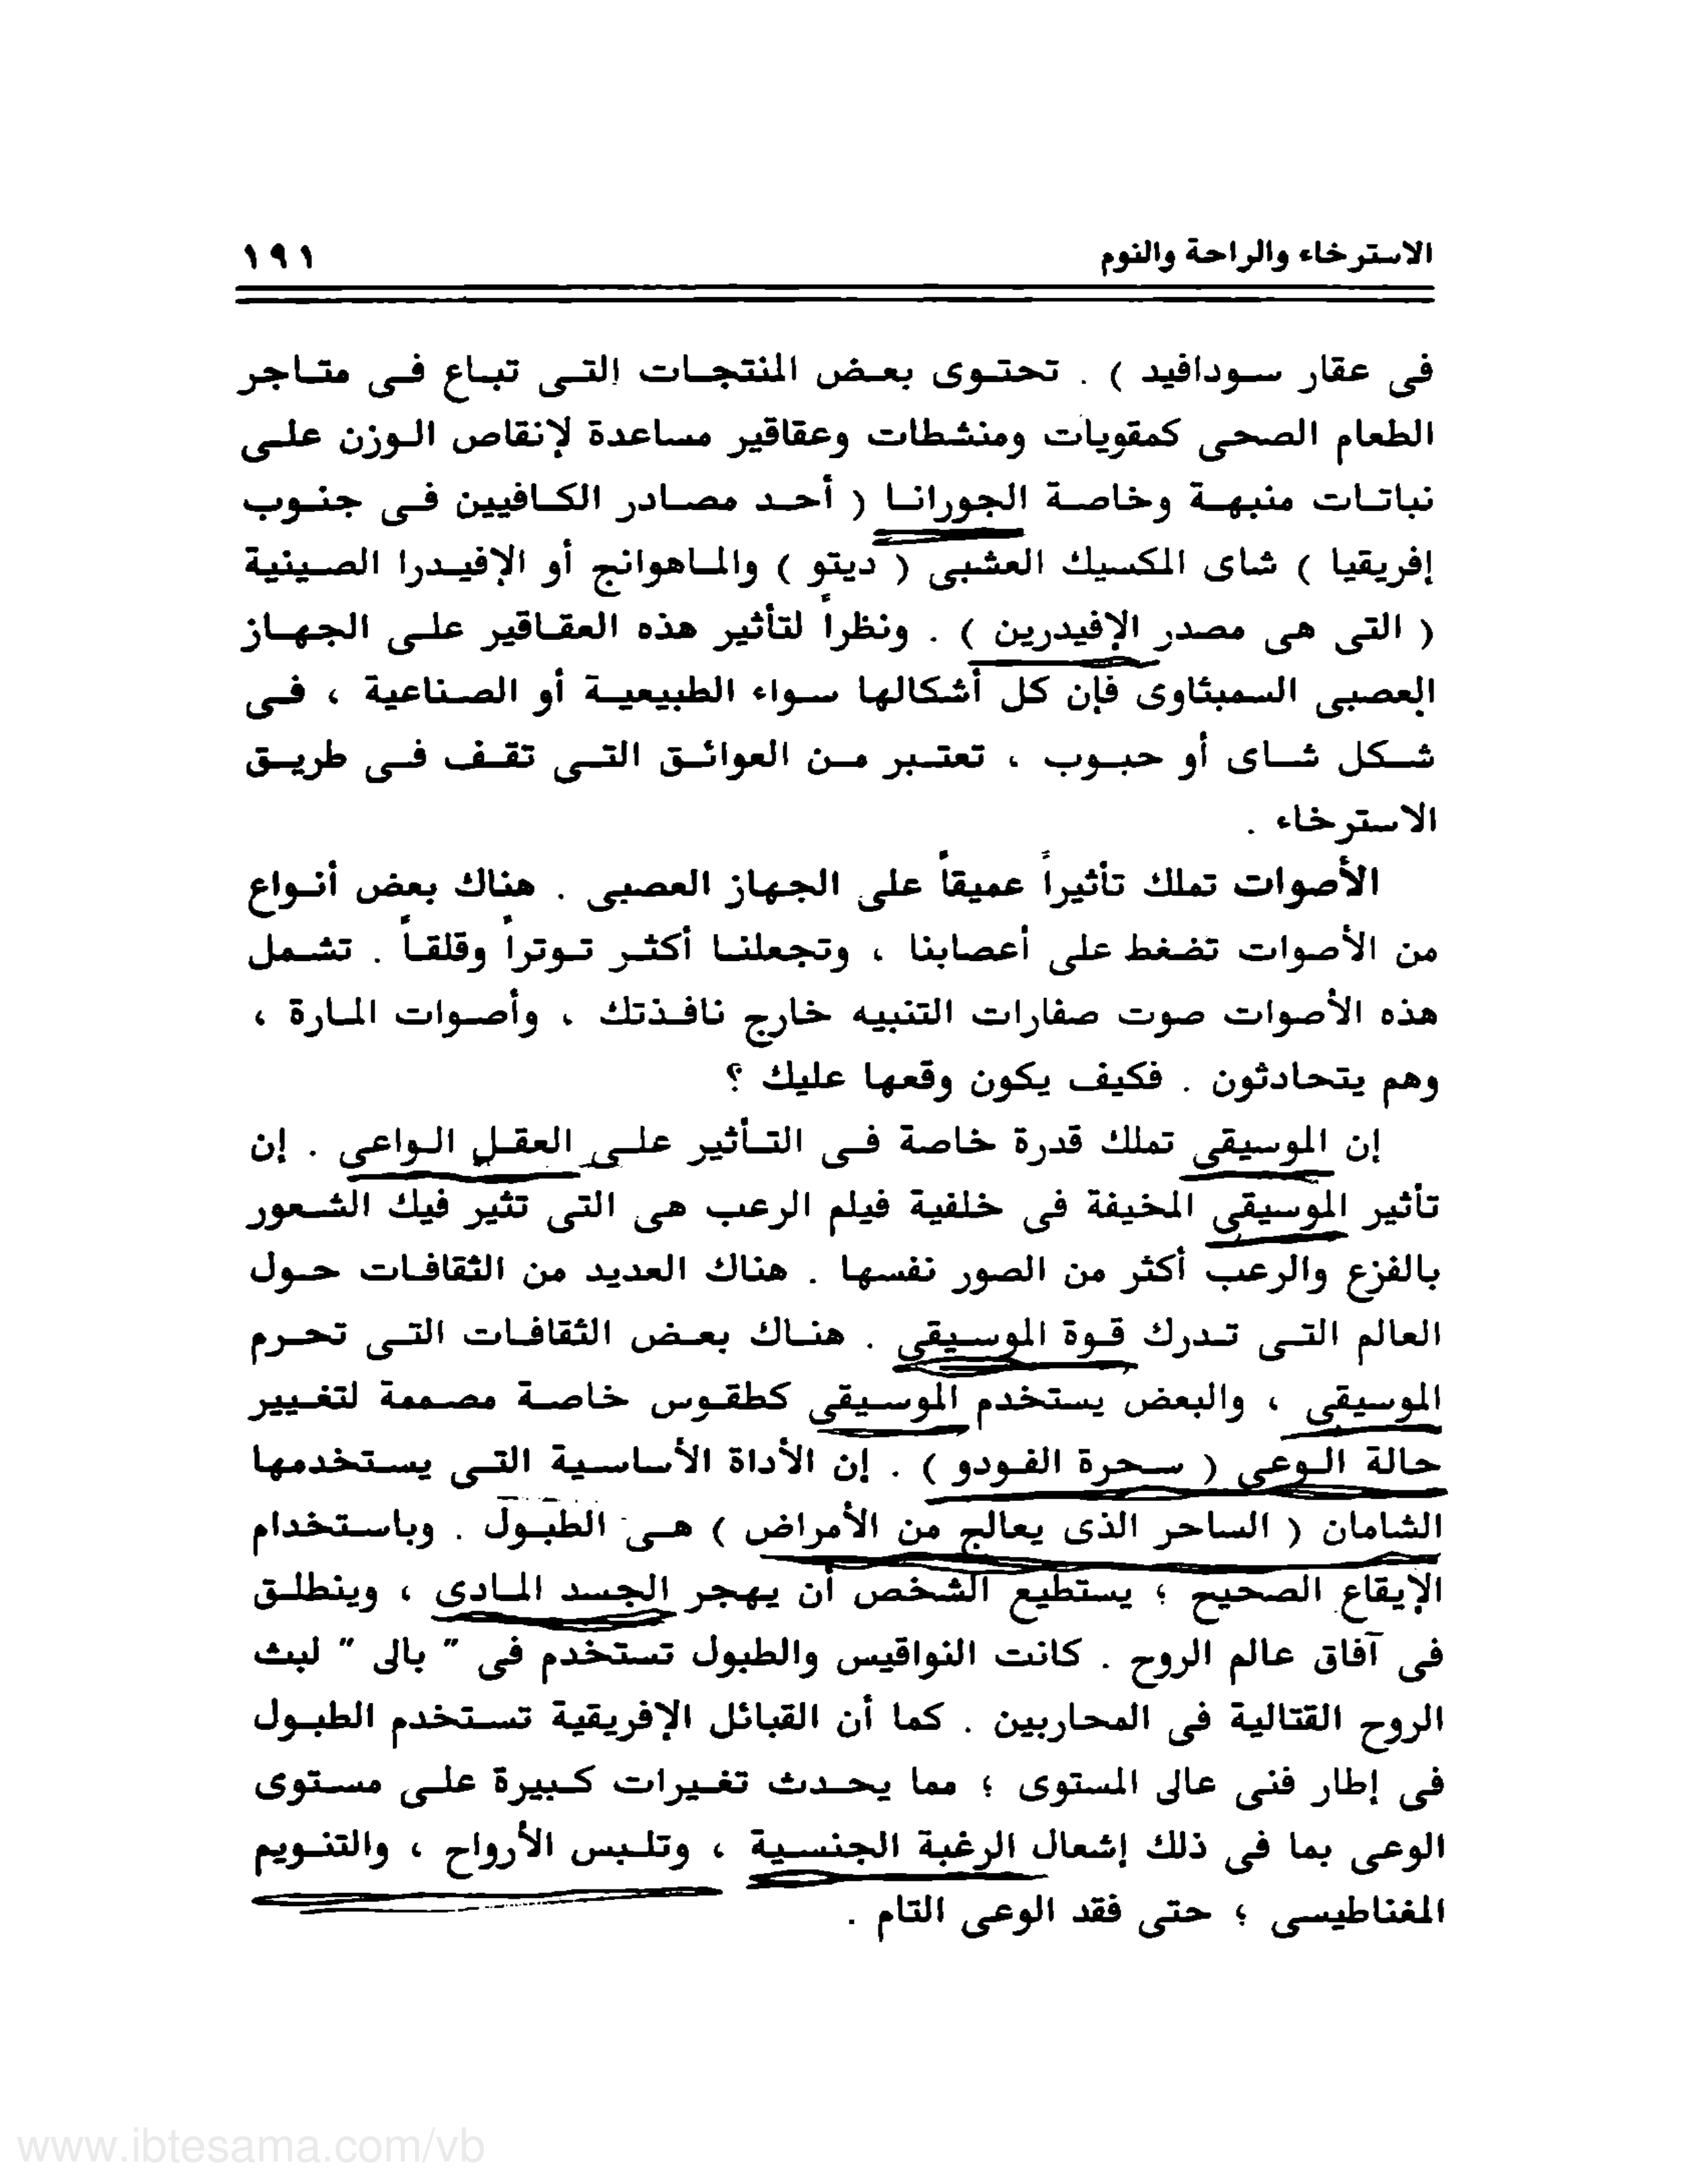 الاسترخاء والراحة والنوم ١٩١
فى عقار سودافيد ) . تحتوى بعض المنتجات التى تباع فى متاجر
الطعام الصحى كمقويات ومنشطات وعقاقير مساعدة لإنقاص الوزن على
نباتات منبهة وخاصة الجورانا ( أحد مصادر الكافيين فى جنوب
إفريقيا ) شاى المكسيك العشبى ( ديتو ) والماهوانج أو الإفيدرا الصينية
( التى هى مصدر الإفيدرين ) . ونظراً لتأثير هذه العقاقير على الجهاز
العصبى السمبثاوى فإن كل أشكالها سواء الطبيعية أو الصناعية ، فى
شكل شاى أو حبوب ، تعتبر من العوائق التى تقف فى طريق
الاسترخاء .
الأصوات تملك تأثيراً عميقاً على الجهاز العصبى . هناك بعض أنواع
من الأصوات تضغط على أعصابنا ، وتجعلنا أكثر توتراً وقلقاً . تشمل
هذه الأصوات صوت صفارات التنبيه خارج نافذتك ، وأصوات المارة ،
وهم يتحادثون . فكيف يكون وقعها عليك ؟
إن الموسيقى تملك قدرة خاصة فى التأثير على العقل الواعى . إن
تأثير الموسيقى المخيفة فى خلفية فيلم الرعب هى التى تثير فيك الشعور
بالفزع والرعب أكثر من الصور نفسها . هناك العديد من الثقافات حول
العالم التى تدرك قوة الموسيقى . هناك بعض الثقافات التى تحرم
الموسيقى ، والبعض يستخدم الموسيقى كطقوس خاصة مصممة لتغيير
حالة الوعى ( سحرة الفودو ) . إن الأداة الأساسية التى يستخدمها
الشامان ( الساحر الذى يعالج من الأمراض ) هى الطبول . وباستخدام
الإيقاع الصحيح ؛ يستطيع الشخص أن يهجر الجسد المادى ، وينطلق
فى آفاق عالم الروح . كانت النواقيس والطبول تستخدم فى " بالى " لبث
الروح القتالية فى المحاربين . كما أن القبائل الإفريقية تستخدم الطبول
فى إطار فنى عالى المستوى ؛ مما يحدث تغيرات كبيرة على مستوى
الوعى بما فى ذلك إشعال الرغبة الجنسية ، وتلبس الأرواح ، والتنويم
المغناطيسى ؛ حتى فقد الوعى التام .
www.ibtesama.com/vb